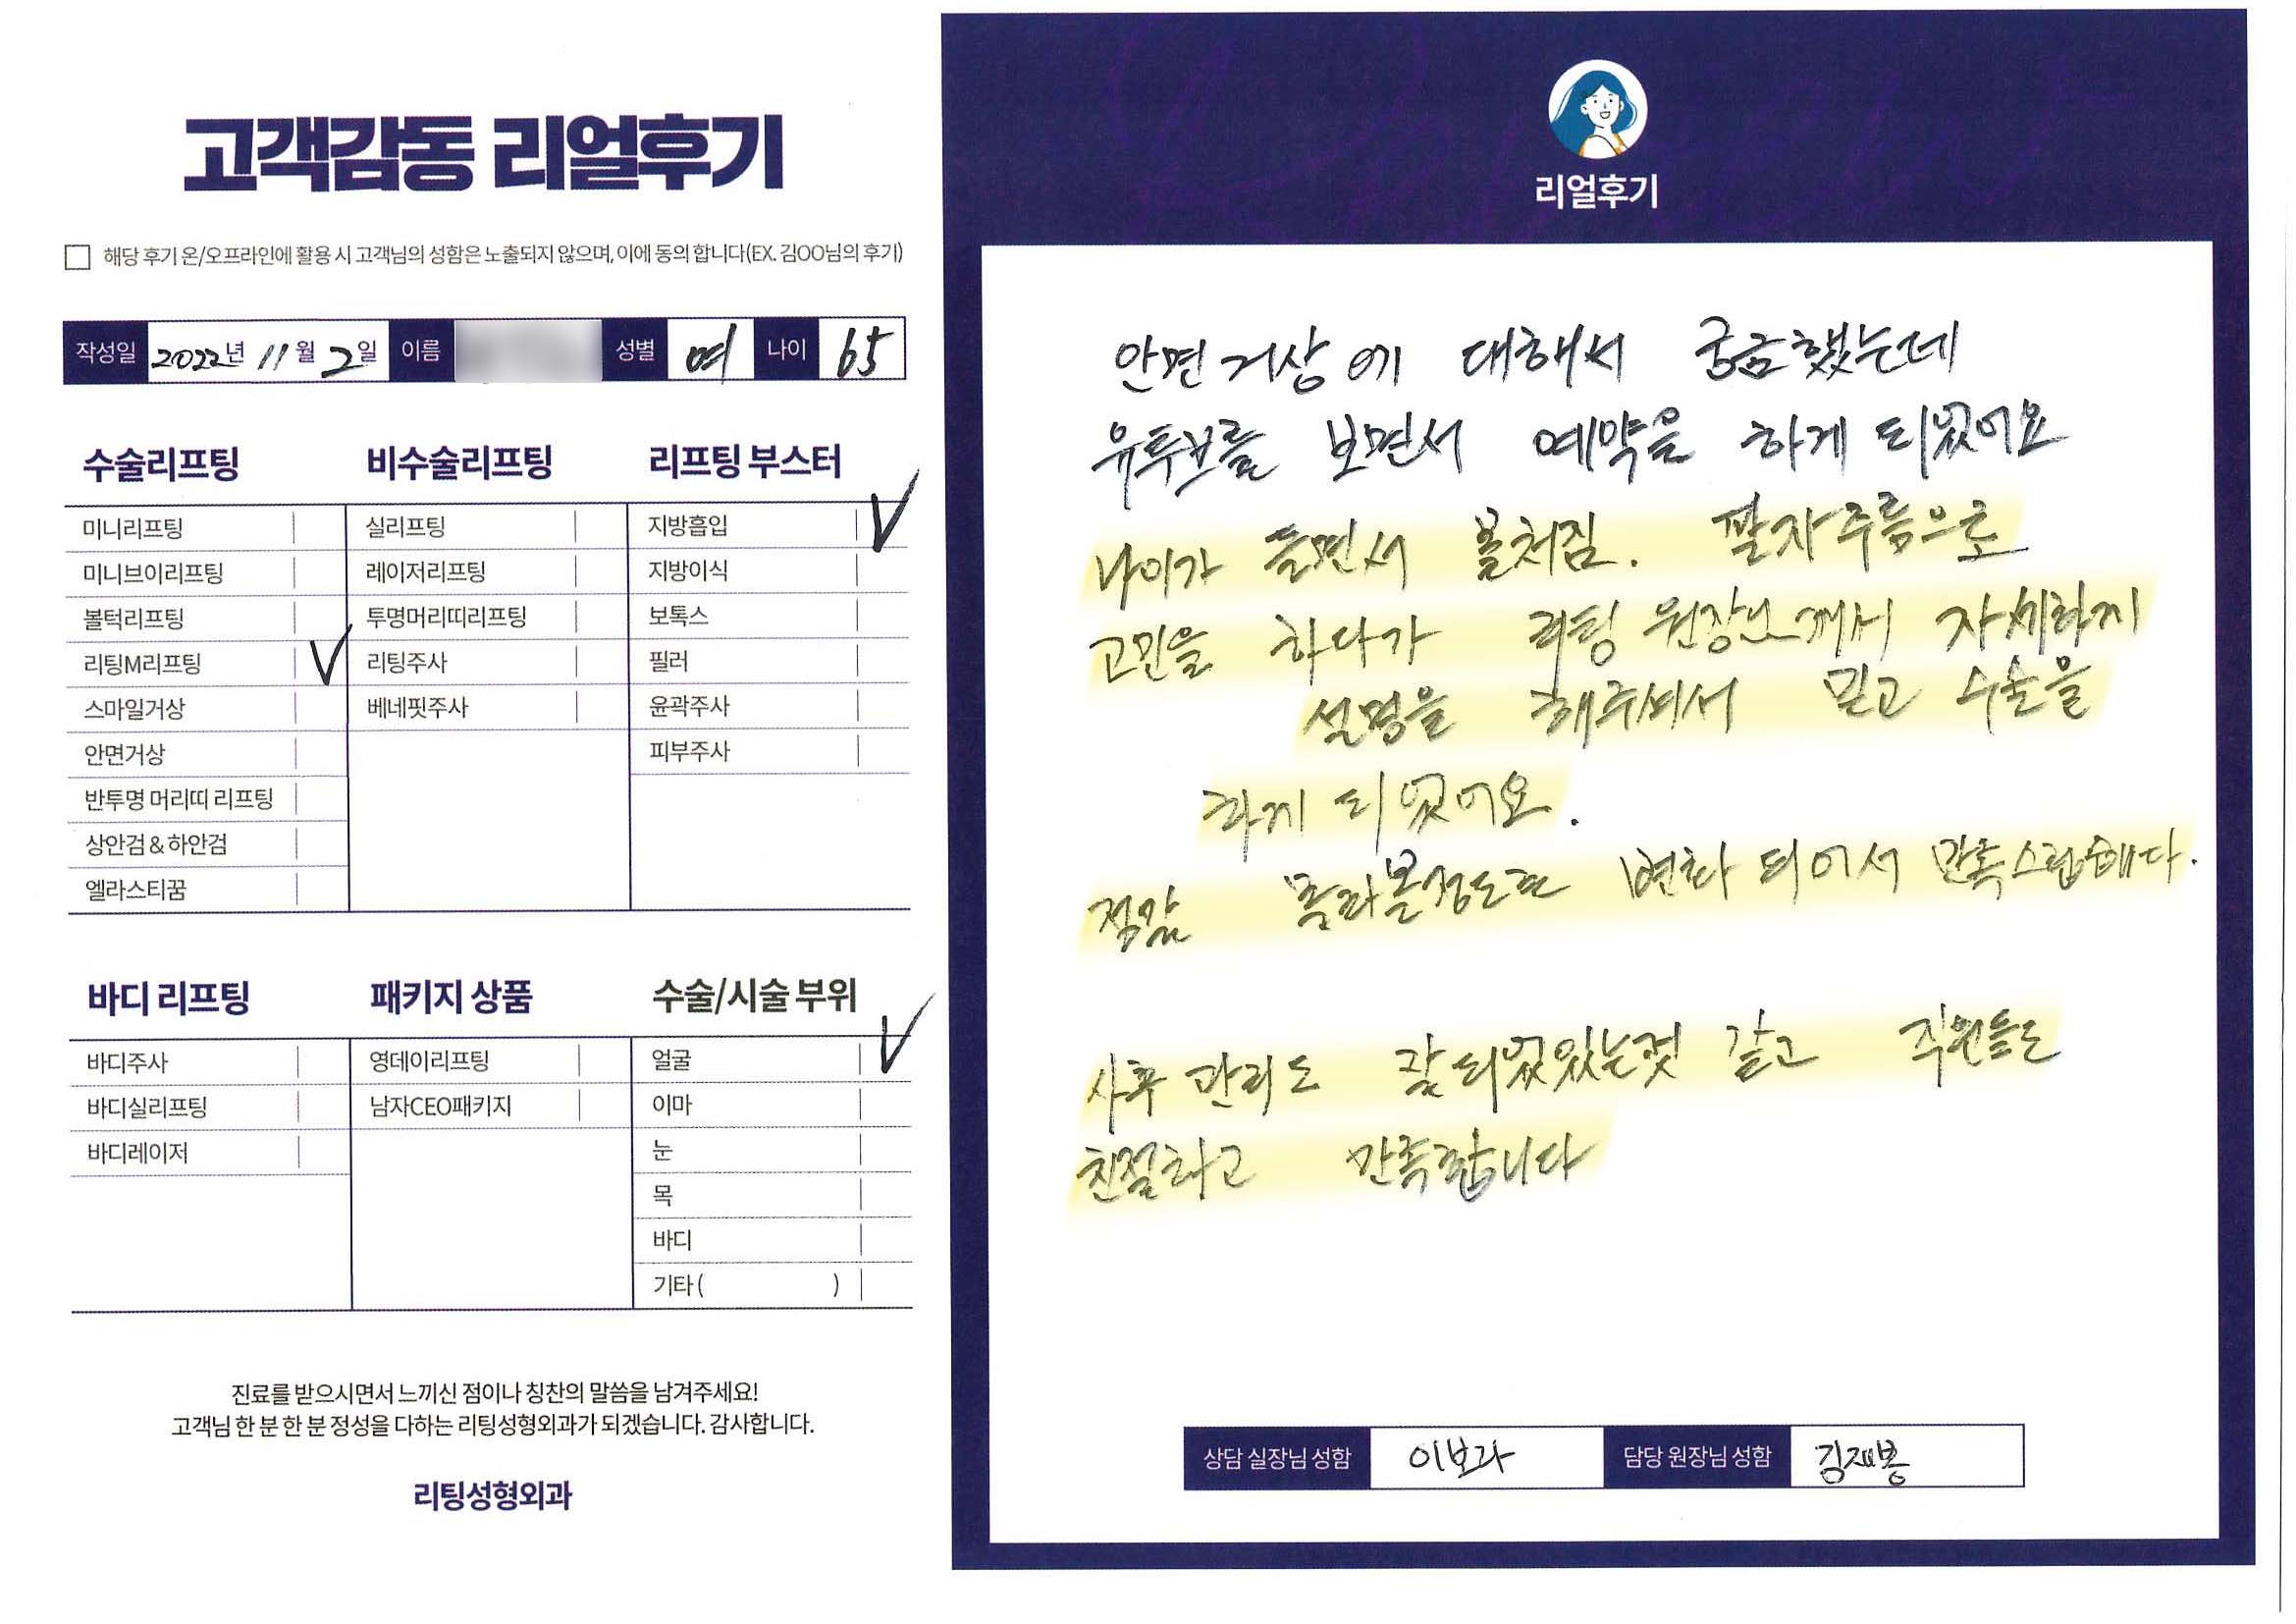 고객감동 리얼후기
해당 후기 온/오프라인에 활용 시 고객님의 성함은 노출되지 않으며, 이에 동의 합니다(EX. 김OO님의 후기)
작성일 2022년 11월 2일 이름 성별 여 나이 65
수술리프팅
미니리프팅
미니브이리프팅
볼턱리프팅
리팅M리프팅 V
스마일거상
안면거상
반투명 머리띠 리프팅
상안검 & 하안검
엘라스티꿈
비수술리프팅
실리프팅
레이저리프팅
투명머리띠리프팅
리팅주사
베네핏주사
리프팅 부스터
지방흡입 V
지방이식
보톡스
필러
윤곽주사
피부주사
바디 리프팅
바디주사
바디실리프팅
바디레이저
패키지 상품
영데이리프팅
남자CEO패키지
수술/시술 부위
얼굴 V
이마
눈
목
바디
기타 ( )
진료를 받으시면서 느끼신 점이나 칭찬의 말씀을 남겨주세요!
고객님 한 분 한 분 정성을 다하는 리팅성형외과가 되겠습니다. 감사합니다.
리팅성형외과
리얼후기
안면거상에 대해서 궁금했는데
유투브를 보면서 예약을 하게 되었어요
나이가 들면서 볼처짐. 팔자주름으로
고민을 하다가 리팅 원장님께서 자세하게
설명을 해주셔서 믿고 수술을
하게 되었어요.
변화 되어서 만족스럽습니다.
사후 관리도 잘되었있는것 같고 직원들도
친절하고 만족합니다
상담 실장님 성함 이보라 담당 원장님 성함 김재봉